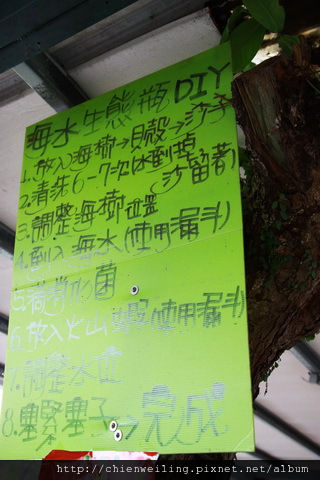 海水生態瓶DIY
1.放入海樹→貝殼→沙子
2.清洗6~7次(水倒掉
沙留著)
3.調整海樹位置
4.倒入海水(使用漏斗)
5.滴消化菌
6.放入火山蝦(使用漏斗)
7.調整水位
8.塞緊塞子→完成
http://chienweiling.pixnet.net/album